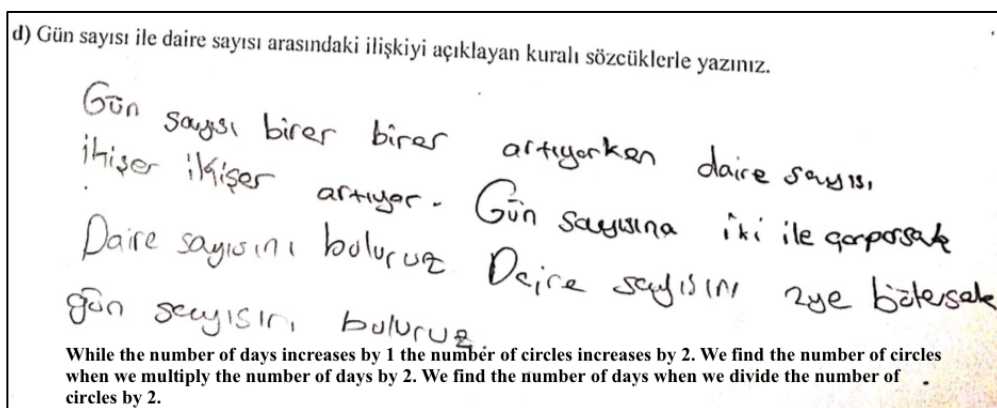 d) Gün sayısı ile daire sayısı arasındaki ilişkiyi açıklayan kuralı sözcüklerle yazınız.
Gün sayısı birer birer artıyorken daire sayısı,
ikişer ikişer artıyor. Gün sayısına iki ile çarparsak
Daire sayısını buluruz. Daire sayısını 2ye bölersek
gün sayısını buluruz.
While the number of days increases by 1 the number of circles increases by 2. We find the number of circles
when we multiply the number of days by 2. We find the number of days when we divide the number of
circles by 2.